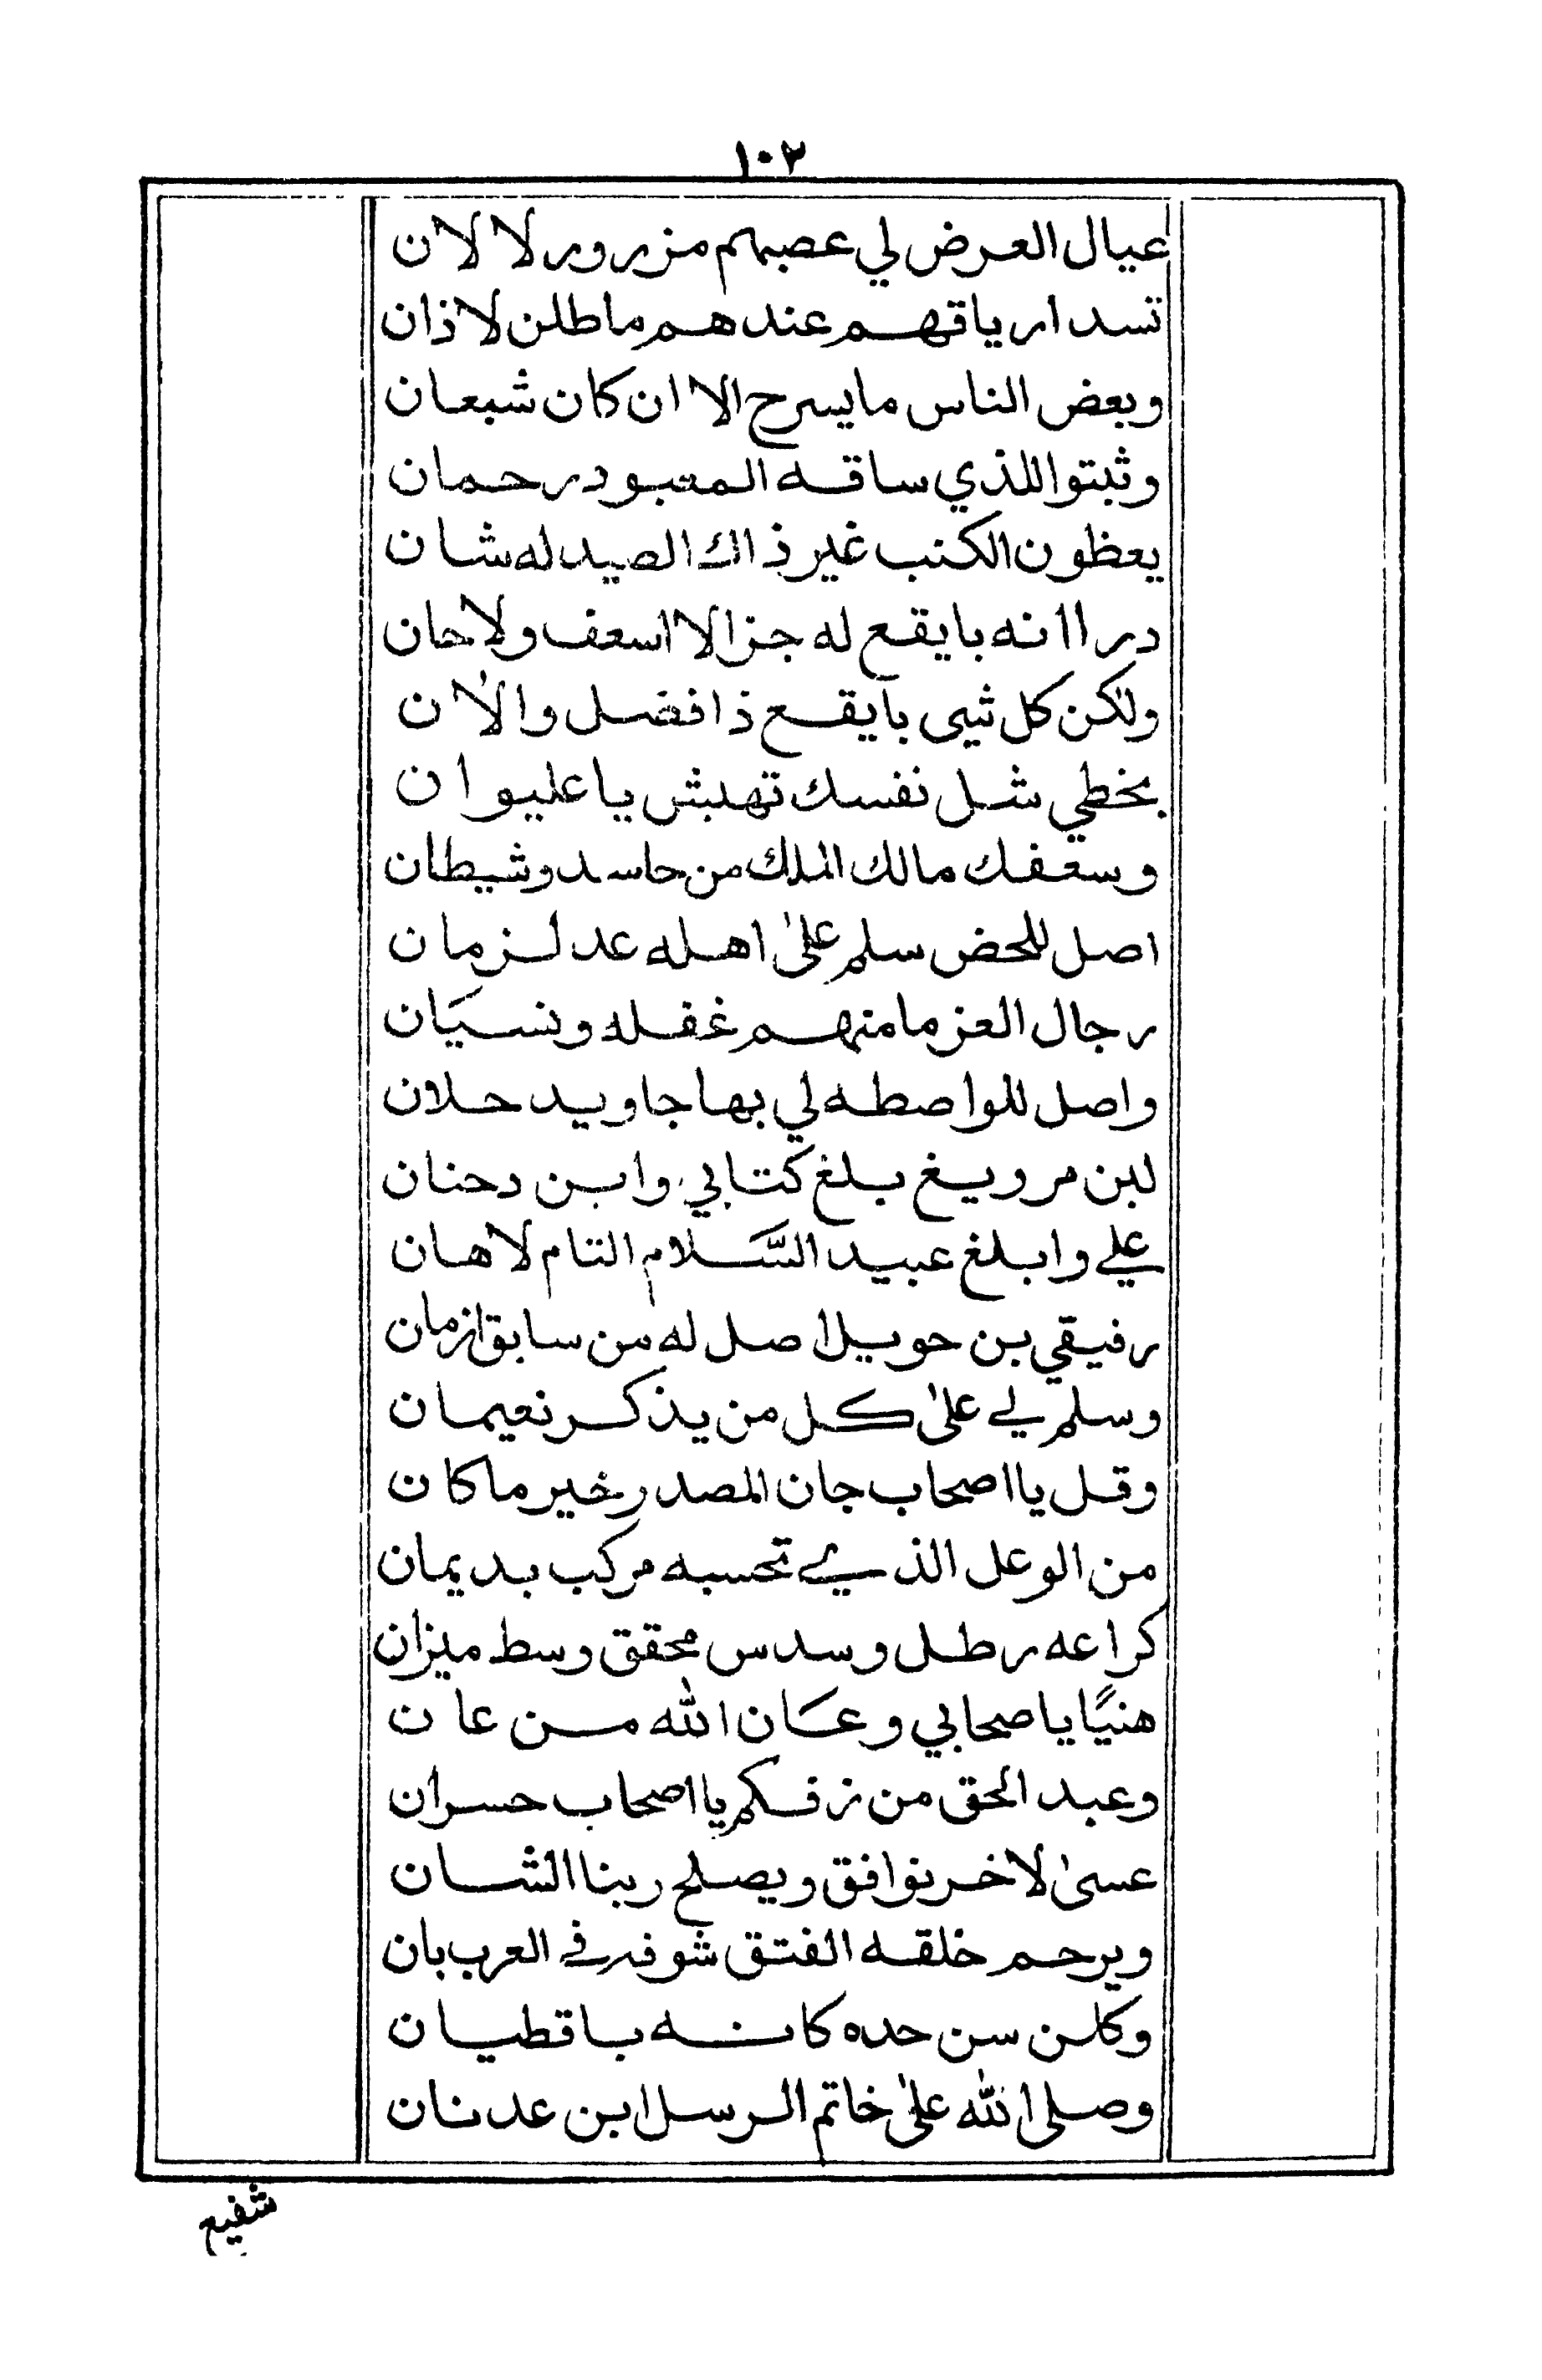 ١٠٢
عيال العرض لي عصبهم مزرور لا لان
تسدار ياقهم عندهم ما طلن لاذان
وبعض الناس ما يسرح الا ان كان شبعان
وثبتوا اللذي ساقه المعبود رحمان
يعظون الكتب غير ذاك الصيد له شان
درا انه بايقع له جزا لا اسعف ولا حان
ولكن كل شي بايقع ذا فضل والان
بخطي شل نفسك تهبش يا عليوان
وسعفك مالك الملك من حاسد وشيطان
اصل للحض سلم على اهله عد لزمان
رجال العز ما منهم غفله ونسيَان
واصل للواصطه لي بها جاويد حلان
لبن مرويغ بلغ كتابي وابن دحنان
علي وابلغ عبيد السَّلام التام لاهان
رفيقي بن حويل اصل له من سابق ازمان
وسلم لي على كل من يذكر نعيمان
وقل يا اصحاب جان المصدر خير ما كان
من الوعل الذي تحسبه مركب بديمان
كراعه رطل وسدس محقق وسط ميزان
هنيًا يا صحابي وعَان الله من عان
وعبد الحق من زفكم يا اصحاب حسران
عسى لاخر نوافق ويصلح ربنا الشان
ويرحم خلقه الفتق شوفه في العرب بان
وكلن سن حده كانه باقطيان
وصلى الله على خاتم الرسل ابن عدنان
شفيع